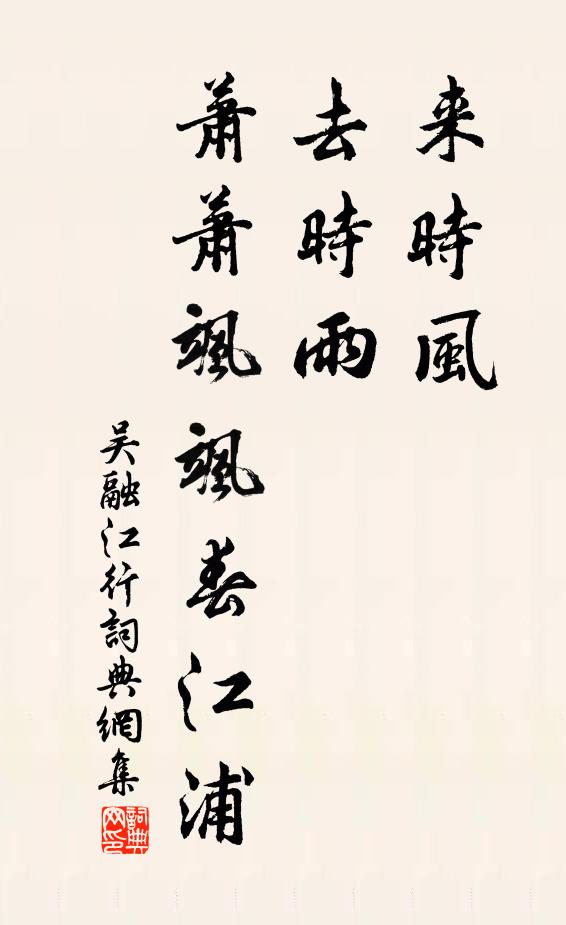 来時風
去時雨
蕭蕭颯颯春江浦
吴融江行詞典網集
詞典網印